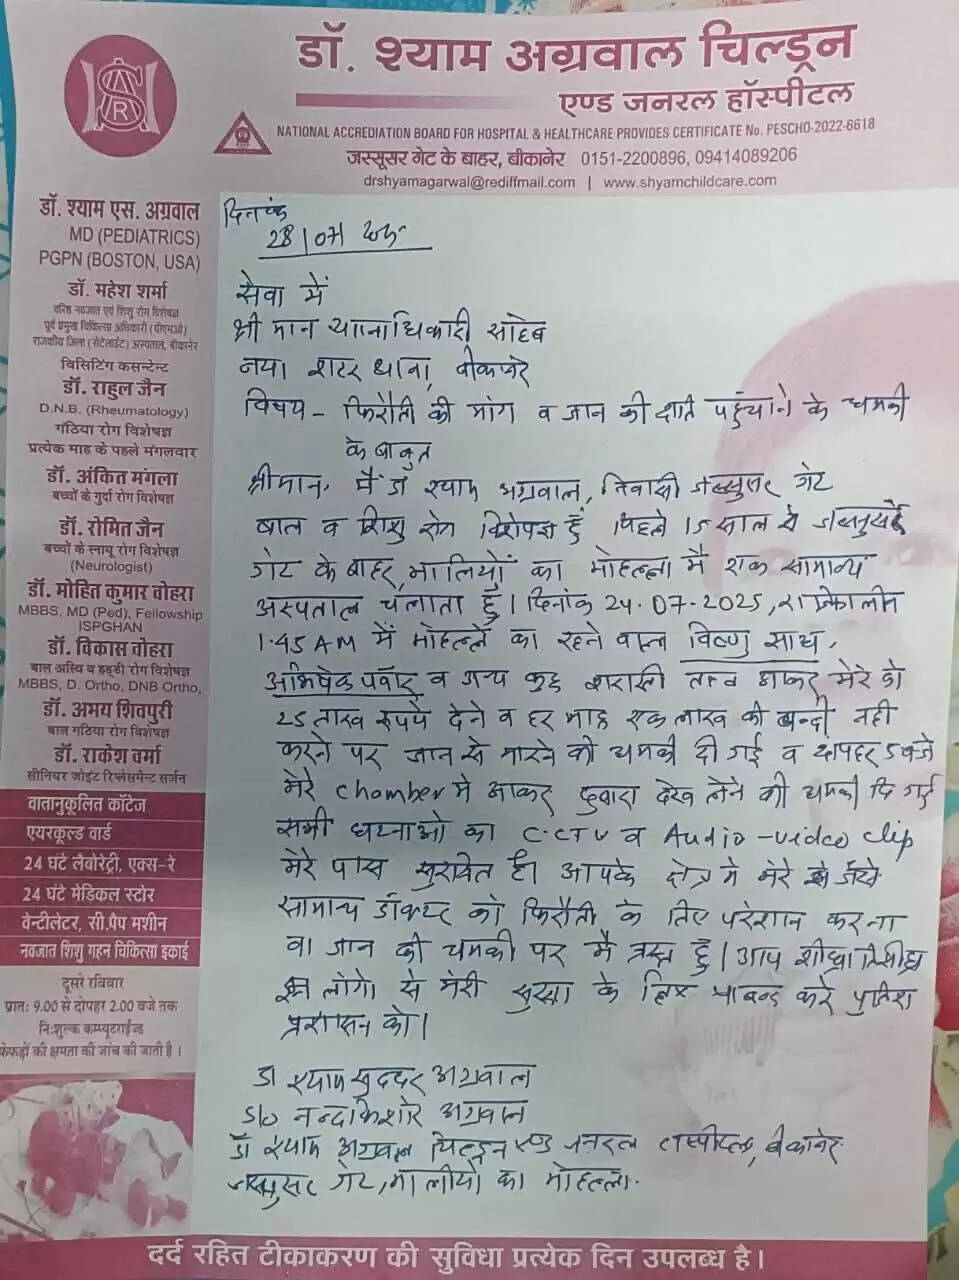 डॉ. श्याम अग्रवाल चिल्ड्रन
एण्ड जनरल हॉस्पीटल
NATIONAL ACCREDIATION BOARD FOR HOSPITAL & HEALTHCARE PROVIDES CERTIFICATE No. PESCHO-2022-6618
जस्सूसर गेट के बाहर, बीकानेर 0151-2200896, 09414089206
drshyamagarwal@rediffmail.com | www.shyamchildcare.com
डॉ. श्याम एस. अग्रवाल
MD (PEDIATRICS)
PGPN (BOSTON, USA)
डॉ. महेश शर्मा
वरिष्ठ नवजात एवं शिशु रोग विशेषज्ञ
पूर्व प्रमुख चिकित्सा अधिकारी (पीएमओ)
राजकीय जिला (सेटेलाईट) अस्पताल, बीकानेर
विसिटिंग कसन्टेन्ट
डॉ. राहुल जैन
D.N.B. (Rheumatology)
गठिया रोग विशेषज्ञ
प्रत्येक माह के पहले मंगलवार
डॉ. अंकित मंगला
बच्चों के गुर्दा रोग विशेषज्ञ
डॉ. रोमित जैन
बच्चों के स्नायू रोग विशेषज्ञ
(Neurologist)
डॉ. मोहित कुमार वोहरा
MBBS, MD (Ped), Fellowship
ISPGHAN
डॉ. विकास वोहरा
बाल अस्थि व हड्डी रोग विशेषज्ञ
MBBS, D. Ortho, DNB Ortho,
डॉ. अमय शिवपुरी
बाल गठिया रोग विशेषज्ञ
डॉ. राकेश वर्मा
सीनियर जोइंट रिप्लेसमेन्ट सर्जन
वातानुकूलित कॉटेज
एयरकूल्ड वार्ड
24 घंटे लेवोरेट्री, एक्स-रे
24 घंटे मेडिकल स्टोर
वेन्टीलेटर, सी.पैप मशीन
नवजात शिशु गहन चिकित्सा इकाई
दूसरे रविवार
प्रात: 9.00 से दोपहर 2.00 बजे तक
नि:शुल्क कम्प्यूटराईज्ड
फेफड़ों की क्षमता की जांच की जाती है।
दिनांक
28/07/
सेवा में
श्री मान थानाधिकारी साहेब
नया शहर थाना, बीकानेर
विषय - फिरौती की मांग व जान की क्षति पहुंचाने के धमकी
के बाबत
श्रीमान, मैं डॉ श्याम अग्रवाल, निवासी जस्सुसर गेट
बाल व शिशु रोग विशेषज्ञ हूँ पिछले 15 साल से जस्सुसर
गेट के बाहर, मालियों का मोहल्ला में एक सामान्य
अस्पताल चलाता हूँ। दिनांक 24-07-2025, रात्रिकालीन
1:45 AM में मोहल्ले का रहने वाला विष्णु साध,
अभिषेक पंवार व अन्य कुछ शरारती तत्व आकर मेरे को
25 लाख रूपये देने व हर माह एक लाख की बन्दी नहीं
करने पर जान से मारने की धमकी दी गई व दोपहर 5 बजे
मेरे chamber मे आकर दुबारा देख लेने की धमकी दि गई
सभी घटनाओ का C.CTV व Audio-video clip
मेरे पास सुरक्षित है। आपके क्षेत्र मे मेरे जैसे
सामान्य डॉक्टर को फिरौती के लिए परेशान करना
वा जान की धमकी पर मै त्रस्त हूँ। आप शीघ्रातिशीघ्र
इन लोगो से मेरी सुरक्षा के लिए पाबन्द करे पुलिस
प्रशासन को।
डा श्याम सुन्दर अग्रवाल
S/o नन्दकिशोर अग्रवाल
डॉ श्याम अग्रवाल चिल्ड्रन एण्ड जनरल हास्पीटल, बीकानेर
जस्सुसर गेट, मालीयो का मोहल्ला.
दर्द रहित टीकाकरण की सुविधा प्रत्येक दिन उपलब्ध है।